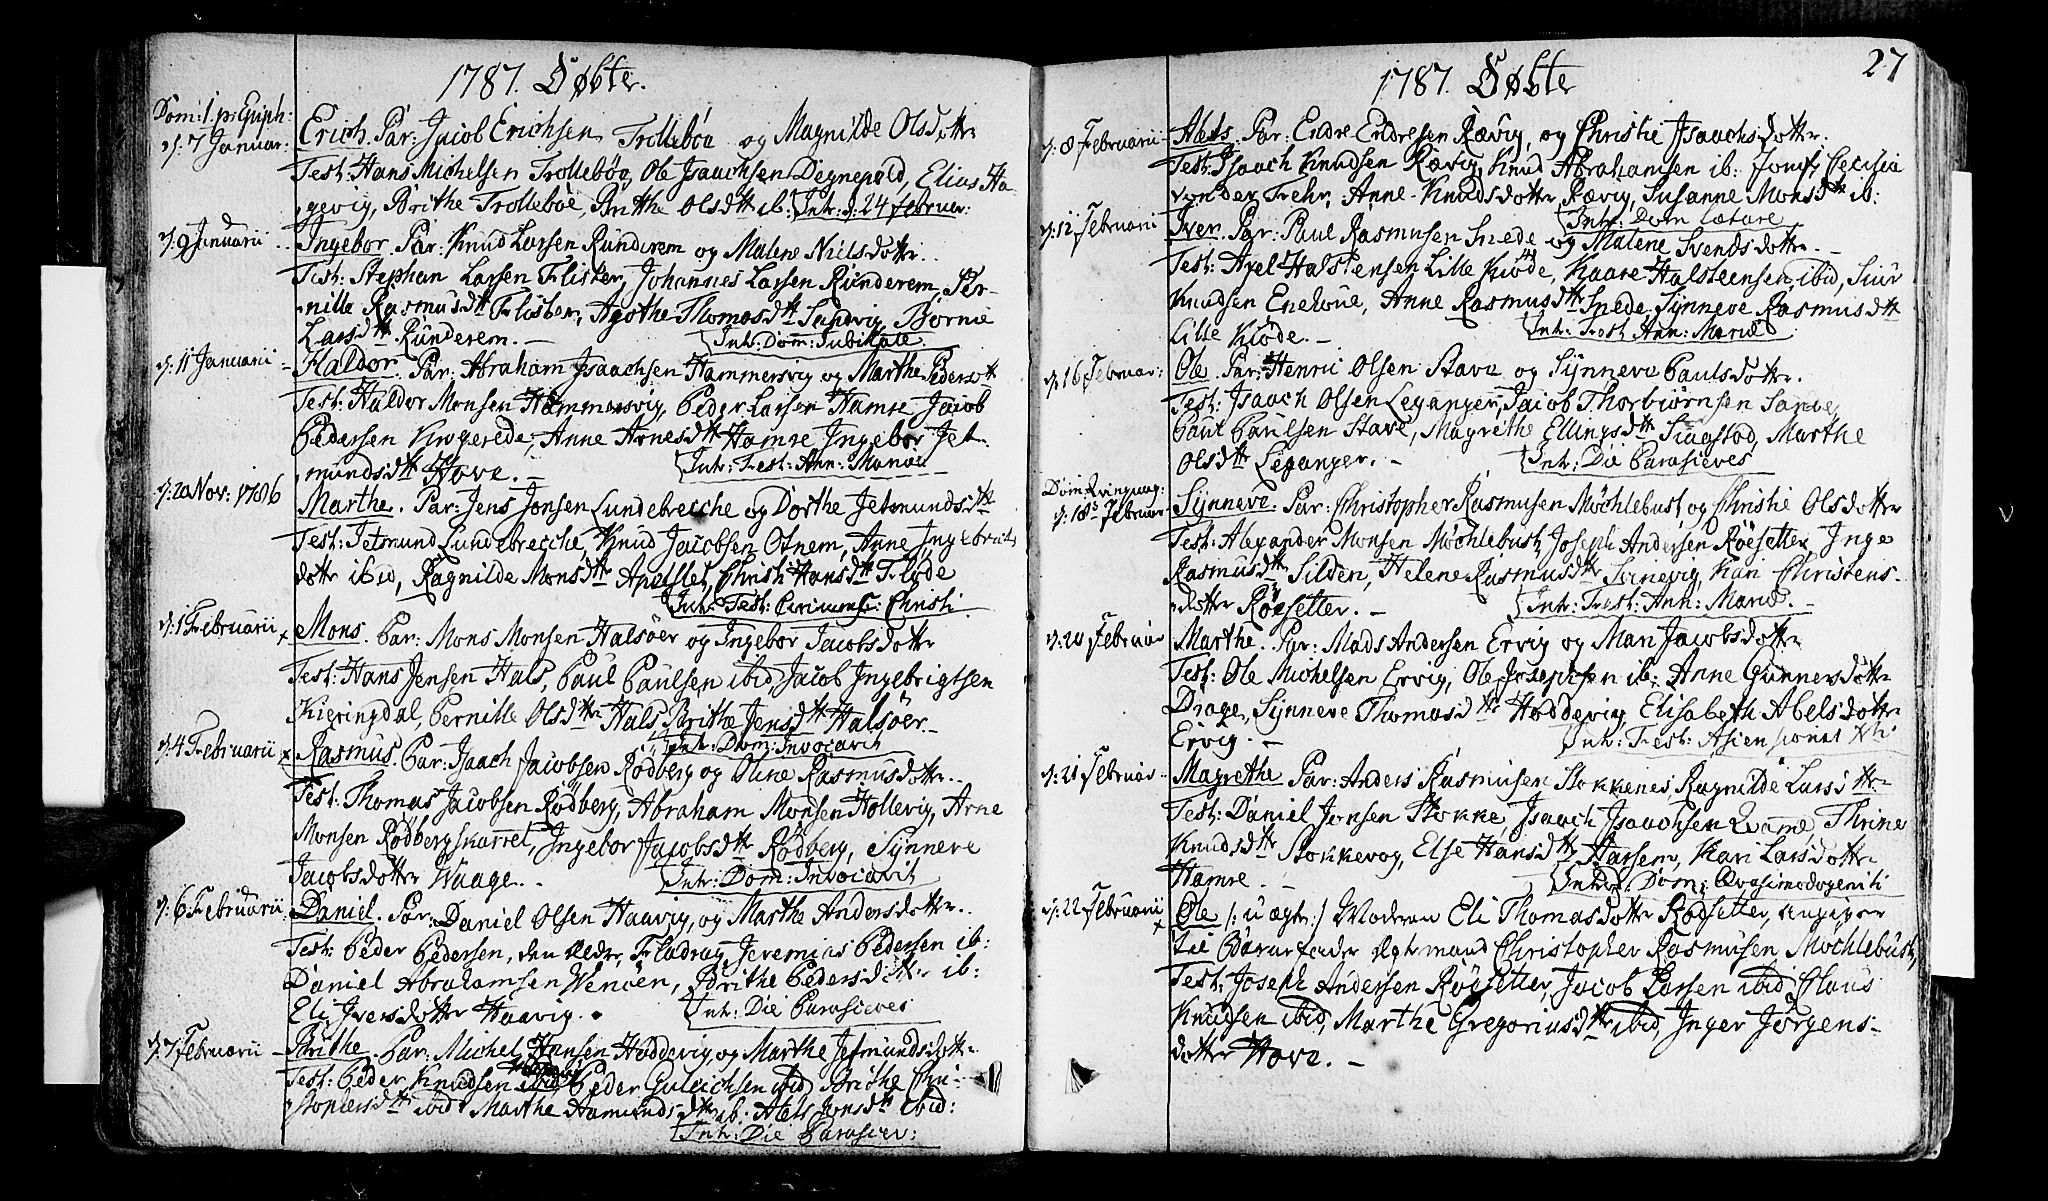 1787. Døbte.
Dom: 1. p: Epiph:
d: 7 Januar:
Erich. Par: Jacob Erichsen Trollebøa og Magnilde Olsdotter
Test: Hans Michelsen Trollebøa, Ole Isaachsen Degnepold, Elias Ha-
gevig, Brithe Trolleböe, Brithe Olsdtt ib: Intr: d: 24 Februar:
d: 9 Januarii
Ingebor. Par: Knud Larsen Runderem og Malene Nielsdotter.
Test: Stephan Larsen Flister, Johannes Larsen Runderem, Per-
nille Rasmusdtt Flister, Agothe Thomasdtt Sandvig, Børnie
Larsdtt Runderem. Intr: Dom: Jubilate.
d: 11 Januarii
Haldor. Par: Abraham Isaachsen Hammersvig og Marthe Pedersdtt
Test: Haldor Monsen Hammersvig, Peder Larsen Hamre, Jacob
Pedersen Krogerede, Anne Arnesdtt Hamre, Ingebor Jet-
mundsdtt Hove. Intr: Fest: Ann: Mariæ
d: 20 Nov: 1786
Marthe. Par: Jens Jonsen Lundebrecche og Dorthe Jetmundsdtt
Test: Jetmund Lundebrecche, Knud Jacobsen Otnem, Anne Ingebrits
dotter ibid, Ragnilde Monsdtr Apesttet, Christi Hansdtt Flöde
Intr: Fest: Circumsc: Christi
d: 1 Februarii
Mons. Par: Mons Monsen Halsøer og Ingebor Jacobsdotter
Test: Hans Jensen Hals, Paul Paulsen ibid, Jacob Ingebrigtsen
Kieringdal, Pernille Olsdtr Hals, Brithe Jensdtt Halsøer
Intr: Dom: Invocavit
d: 4 Februarii
Rasmus. Par: Isaach Jacobsen Rødberg og Oline Rasmusdotter.
Test: Thomas Jacobsen Rödberg, Abraham Monsen Hollevig, Arne
Monsen Rødbergskarret, Ingebor Jacobsdtt Rødberg, Synneve
Jacobsdotter Waage. Intr: Dom: Invocavit
d: 6 Februarii
Daniel. Par: Daniel Olsen Haavig, og Marthe Andersdotter.
Test: Peder Pedersen, den Eldre, Fladrag, Jeremias Pedersen ib:
Daniel Abrahamsen Wenöen, Brithe Pedersdotter ib:
Eli Iversdotter Haavig. Intr: Die Parasceves
d: 7 Februarii
Brithe. Par: Michel Hansen Hoddevig, og Marthe Jetmundsdotter
Test: Peder Knudsen ibid, Peder Guleichsen ibid, Brithe Chri-
stophersdtt ibid Marthe Aamundsdtr ib. Abels Jonsdtt ibid:
Intr: Die Parascev:
1787. Døbte
27
d: 8 Februarii
Abels. Par: Endre Endresen Rævig, og Christie Isaachsdotter.
Test: Isaach Knudsen Rævig, Knud Abrahamsen ib: Jomf, Cecilia
von der Fehr, Anne Knudsdotter Rævig, Susanne Monsdtt ib:
Intr: Dom Lætare
d: 12 Februarii
Iver. Par: Paul Rasmusen Snede og Malene Svendsdotter.
Test: Axel Halstensen Lille Kiöde, Kaare Halsteensen ibid, Siur
Knudsen Enehoue, Anne Rasmusdtt Snede, Synneve Rasmusdtt
Lille Kiöde. Intr: Fest Ann: Mariæ
d. 16 Februar:
Ole. Par: Henric Olsen Stave og Synneve Paulsdotter.
Test: Isaach Olsen Leganger, Jacob Thorbiørnsen Sande,
Paul Paulsen Stave, Magrethe Ellingsdtt Siaastad, Marthe
Olsdtt Leganger. Intr: Die Parasceves
Dom: Qvinqvag:
d: 18 Februar
Synneve. Par: Christopher Rasmusen Möchlebust, og Christie Olsdotter
Test: Alexander Monsen Möchlebust, Joseph Andersen Röesetter, Inge
Rasmusdtt Silden, Helene Rasmusdtr Svinevig, Kari Christens-
dotter Röesetter. Intr: Fest: Ann: Mariæ.
d: 20 Februar
Marthe. Par: Mads Andersen Ervig og Mari Jacobsdotter
Test: Ole Michelsen Ervig, Ole Josephsen ib: Anne Gunnersdotter
Drage, Synneve Thomasdtr Hoddevig, Elisabeth Abelsdotter
Ervig. Intr: Fest: Ascensionis Xti.
d: 21 Februar
Magrethe Par: Anders Rasmusen Stokkenes, Ragnilde Larsdtr
Test: Daniel Jonsen Stokke, Isaach Isaachsen Qvame, Thrine
Knudsdtt Stokkevog, Else Hansdtt Aarsem, Kari Larsdotter
Hamre. Intr: Dom: Qvasimodogeniti
d: 22 Februarii
Ole (: uægte :) Moderen Eli Thomasdotter Rødsetter, angiver
til Barnefader Egtemand Christopher Rasmusen Möchlebust,
Test: Joseph Andersen Röesetter, Jacob Larsen ibid, Claus
Knudsen ibid, Marthe Gregoriusdtr ibid, Inger Jörgens-
dotter Hove.